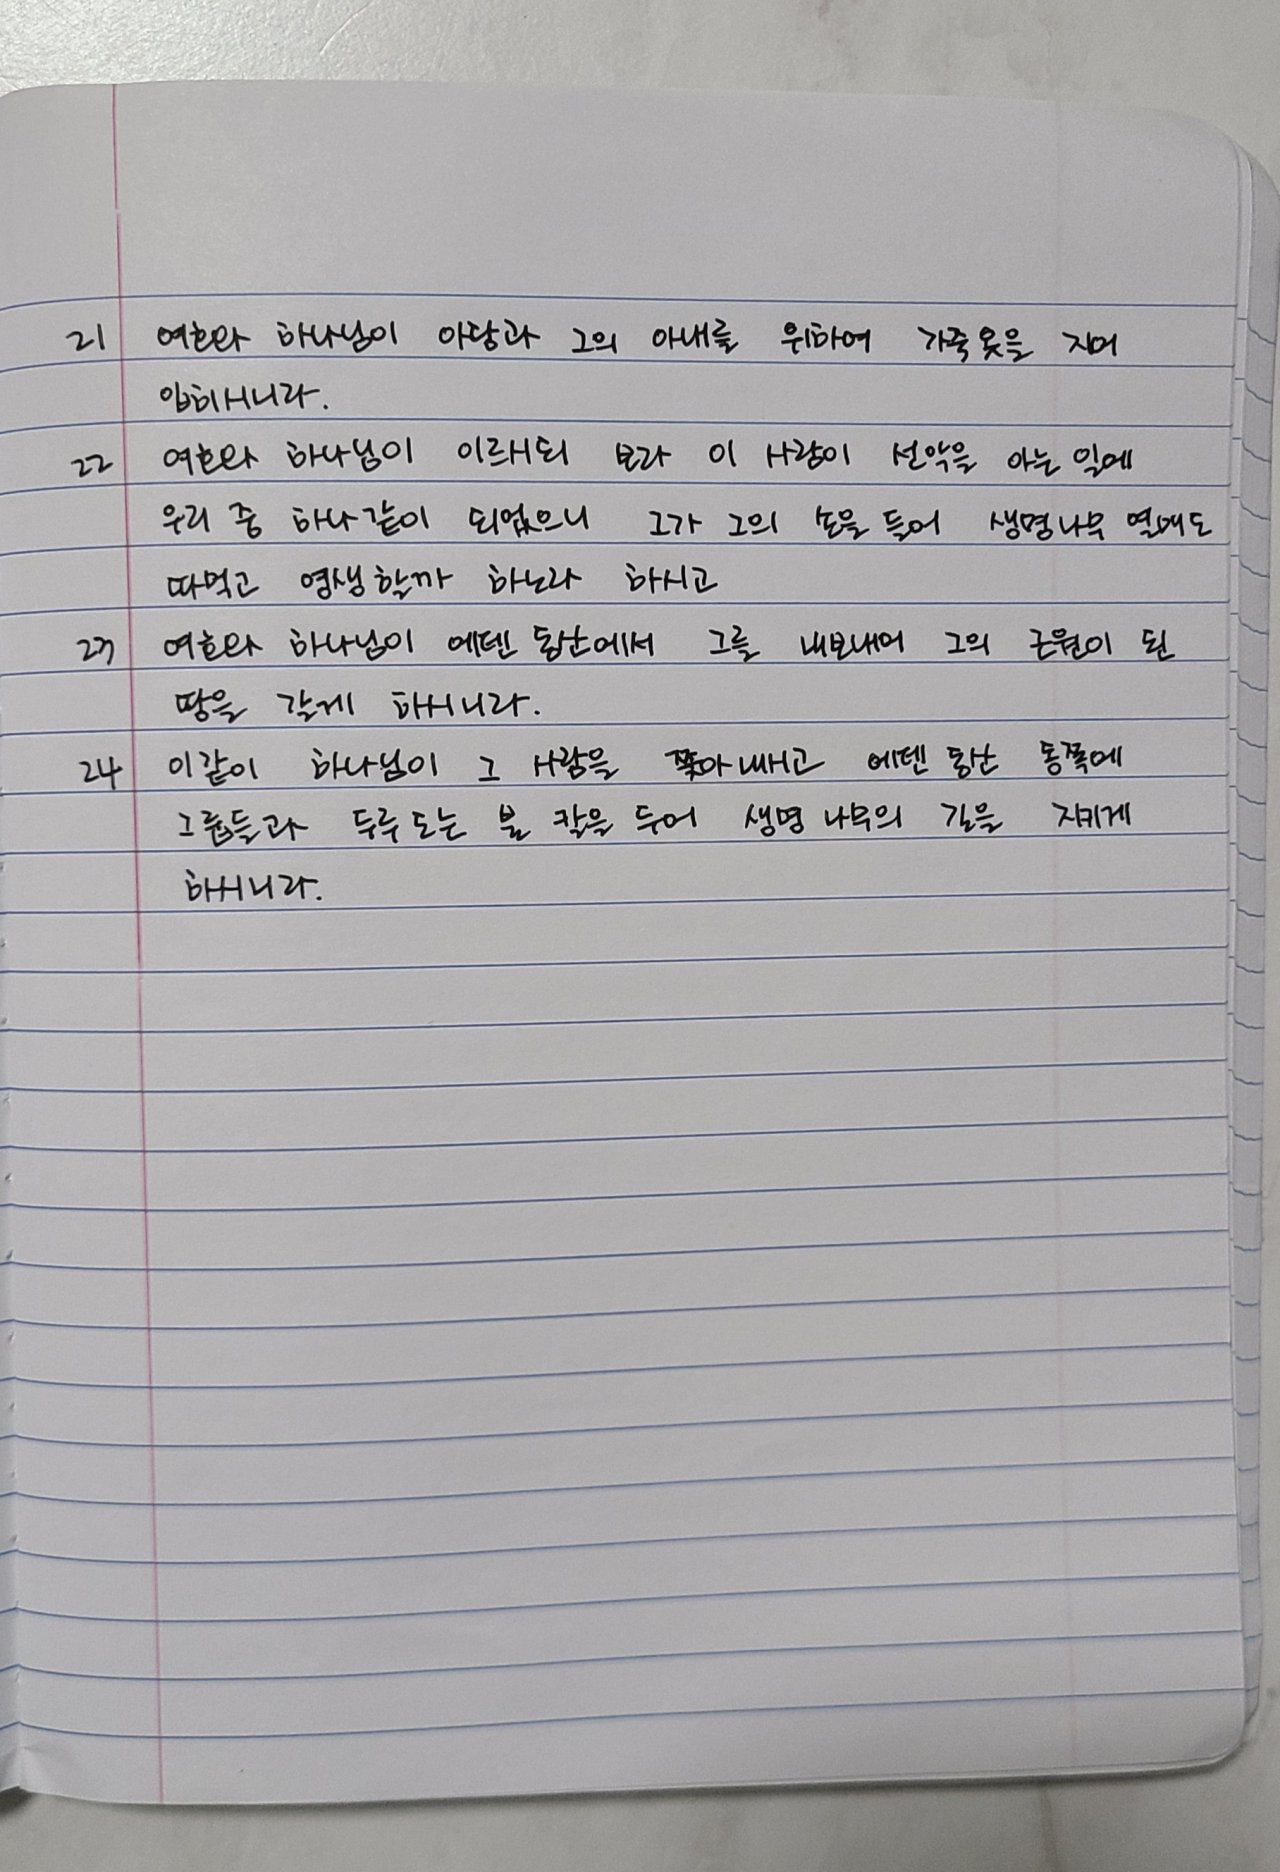 21 여호와 하나님이 아담과 그의 아내를 위하여 가죽옷을 지어
입히시니라.
22 여호와 하나님이 이르시되 보라 이 사람이 선악을 아는 일에
우리 중 하나 같이 되었으니 그가 그의 손을 들어 생명나무 열매도
따먹고 영생할까 하노라 하시고
23 여호와 하나님이 에덴 동산에서 그를 내보내어 그의 근원이 된
땅을 갈게 하시니라.
24 이같이 하나님이 그 사람을 쫓아내시고 에덴 동산 동쪽에
그룹들과 두루 도는 불 칼을 두어 생명 나무의 길을 지키게
하시니라.